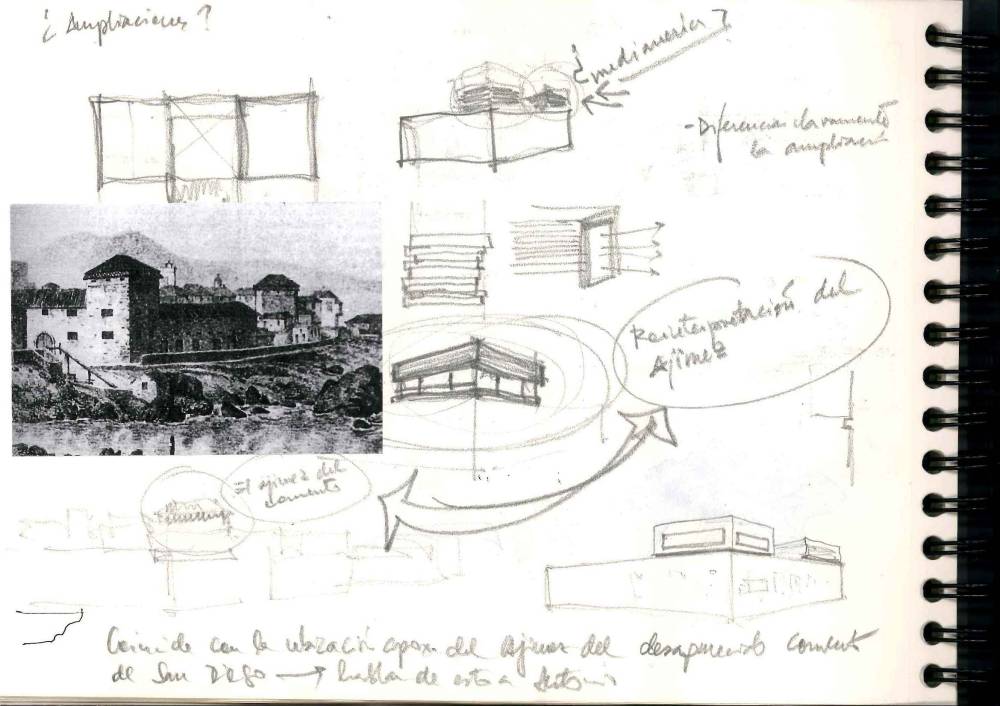 ¿Ampliaciones?
¿medianería?
-Diferenciar claramente
la ampliación
Reinterpretación del
Ajimez
El ajimez del
convento
Coincide con la ubicación aprox. del Ajimez del desaparecido convento
de San Diego → hablar de esto a